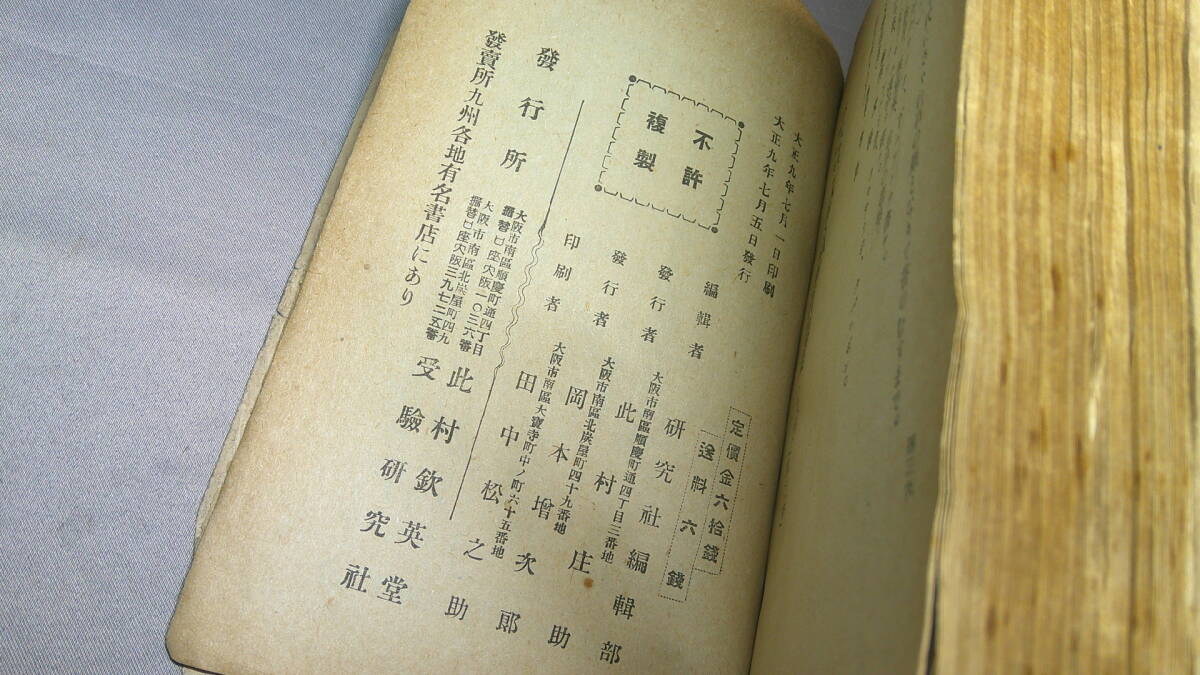 大正九年七月一日印刷
大正九年七月五日發行
不許
複製
定價金六拾錢
送料六錢
編輯者 研究社編輯部
大阪市南區順慶町通四丁目三番地
發行者 此村庄助
大阪市南區北炭屋町四十九番地
發行者 岡本增次郎
大阪市南區大寶寺町中ノ町六十五番地
印刷者 田中松之助
發行所
大阪市南區順慶町通四丁目
振替口座大阪一〇三六番
此村欽英堂
大阪市南區北炭屋町四九
振替口座大阪三九七二五番
受驗研究社
發賣所九州各地有名書店にあり